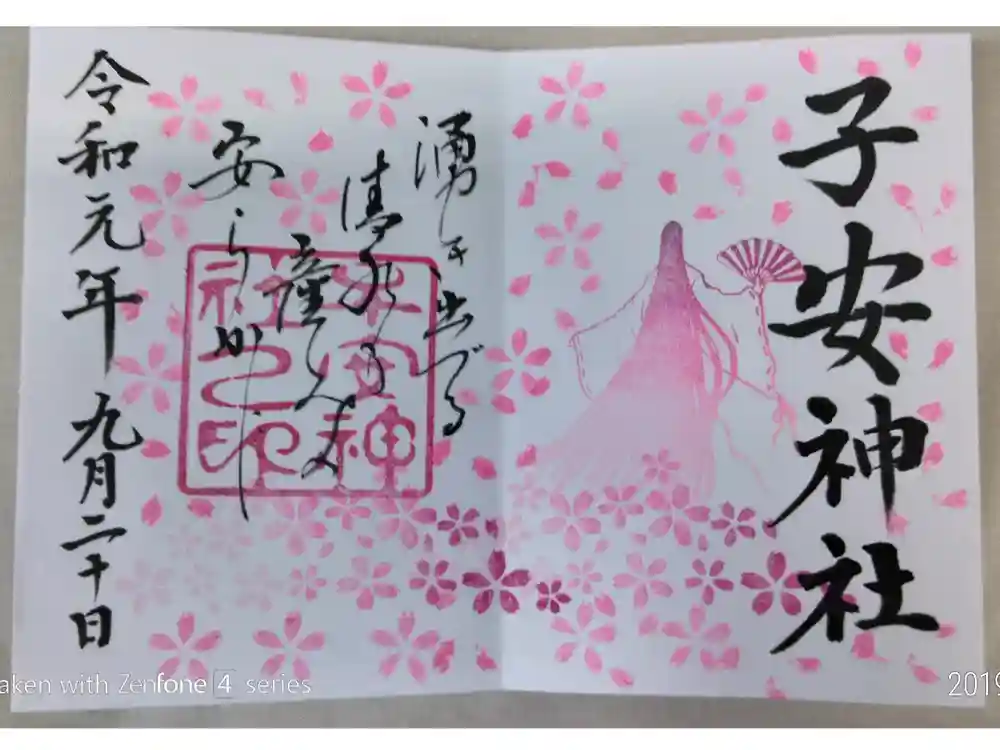 子安神社
湧き出づる
清水の
産
安らか
令和元年九月二十日
子安神
社之印
aken with Zenfone 4 series
2019